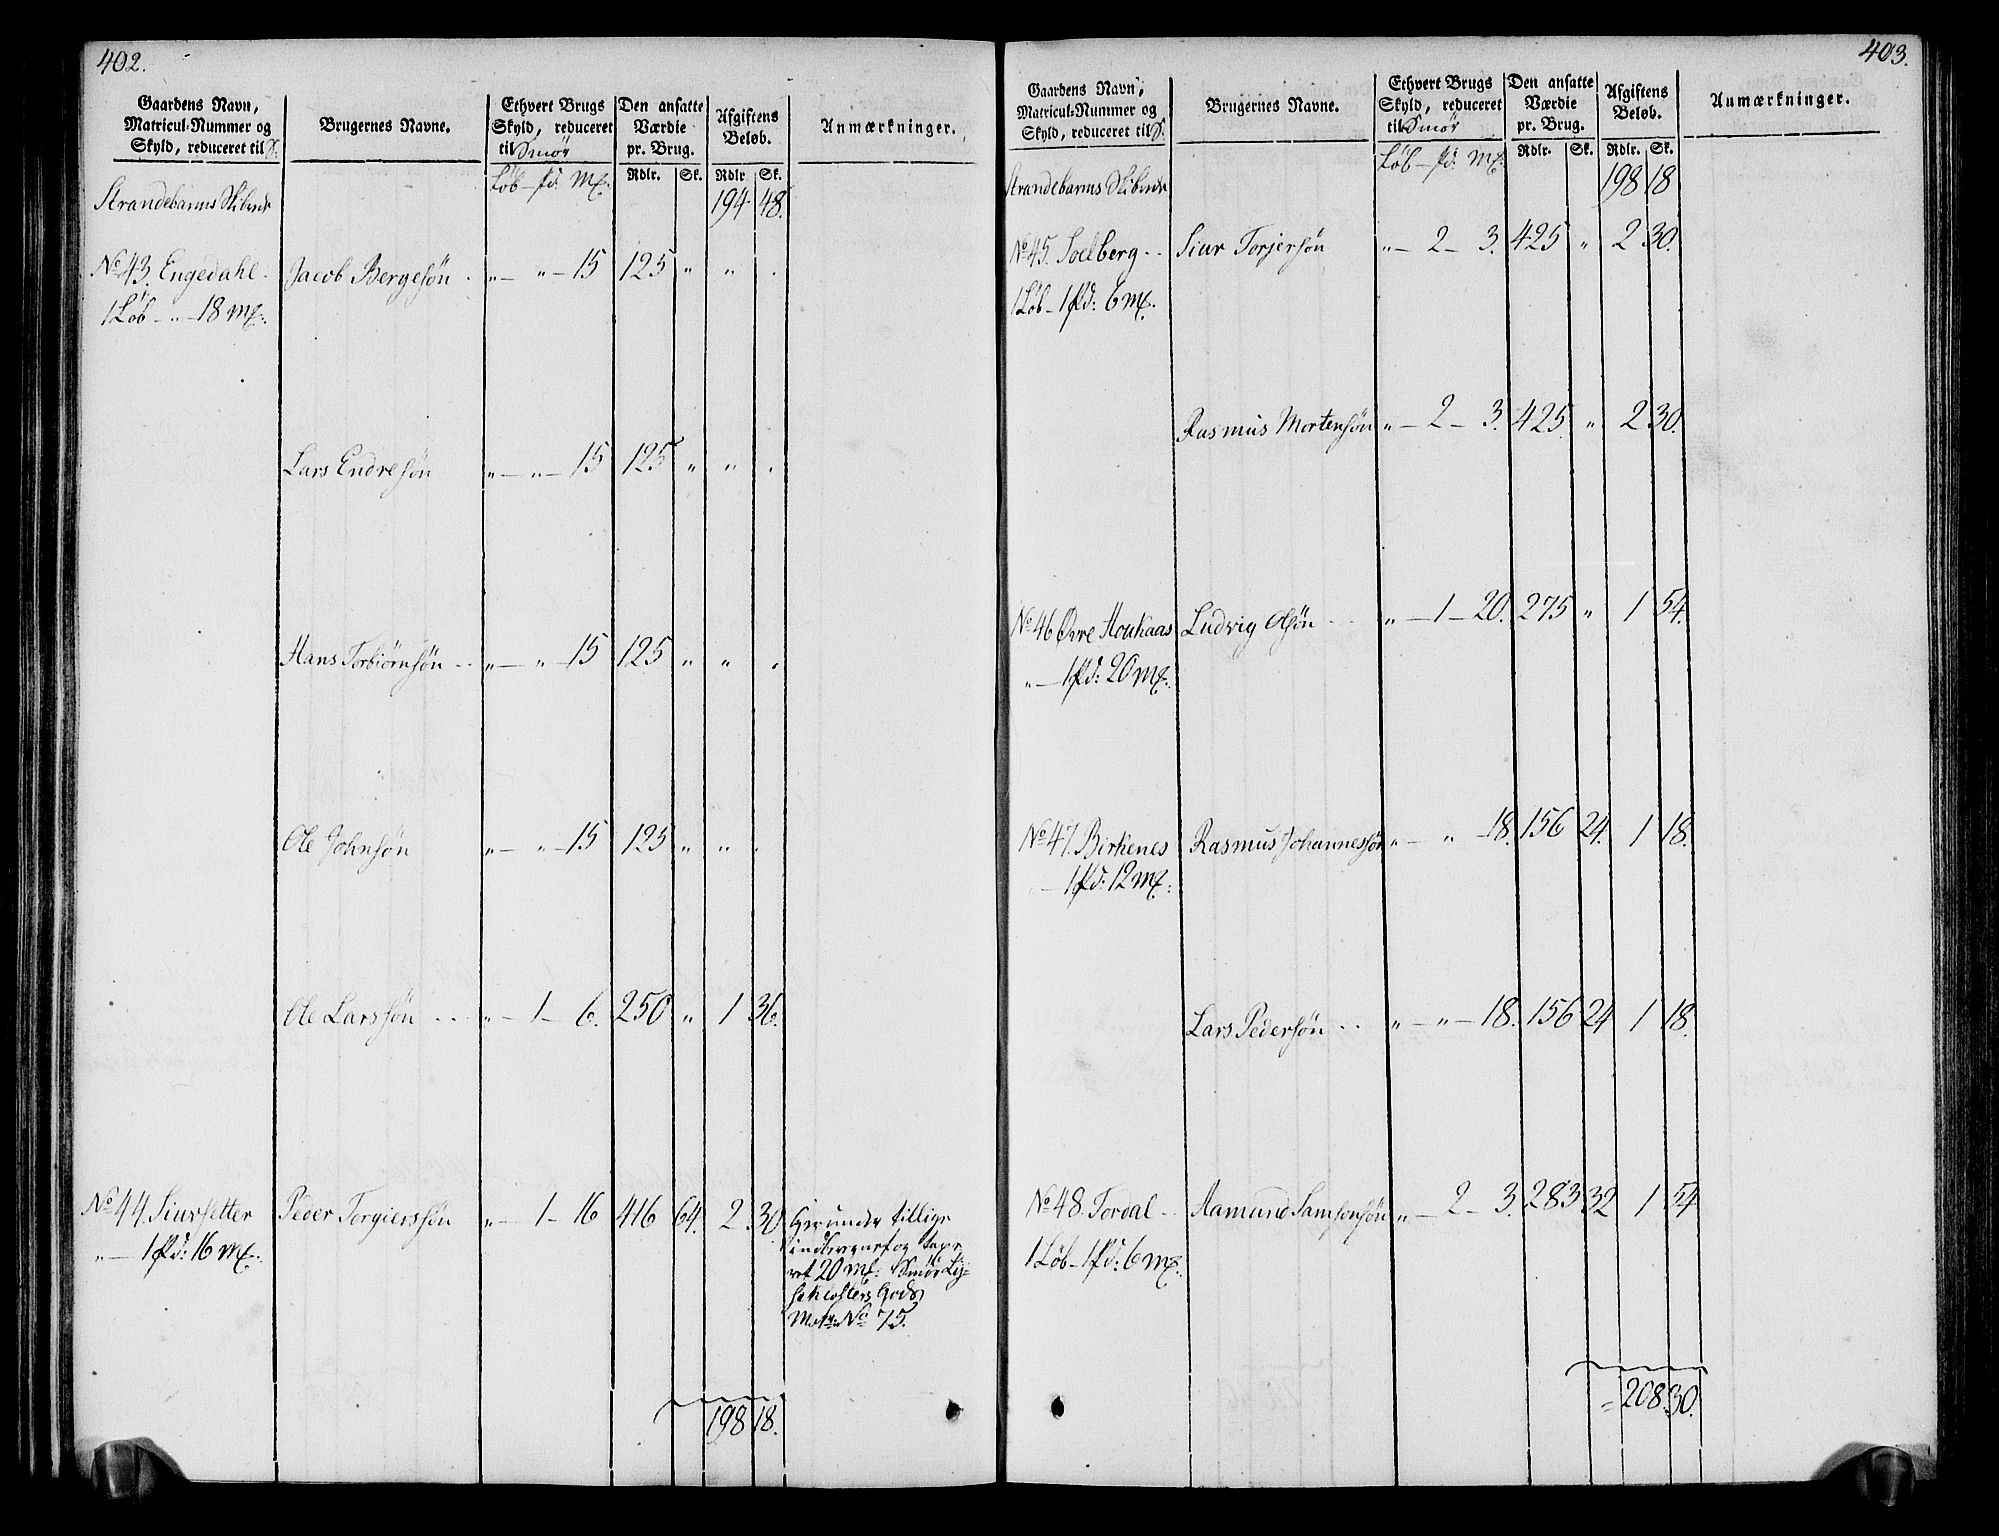 402.
Gaardens Navn, Matricul-Nummer og Skyld, reduceret til S:
Brugernes Navne.
Ethvert Brugs Skyld, reduceret til Smör
Den ansatte Værdie pr. Brug.
Afgiftens Beløb.
Anmærkninger.
Løb - pd: Mk:
Rdlr. Sk. Rdlr. Sk.
Strandebarms Skibrede 194 48.
No 43. Engedahl. Jacob Bergesøn „ — „ — 15 125 „ „ .
1 Løb - „ - 18 Mk:
Lars Endresøn „ — „ — 15 125 „ „ .
Hans Torbiørnsøn „ — „ — 15 125 „ „ .
Ole Johnsøn „ — „ — 15 125 „ „ .
Ole Larssøn „ — 1 — 6. 250 „ 1 36.
No 44. Siursetter Peder Torgierssøn „ — 1 — 16 416 64. 2 30.
„ — 1 pd: 16 Mk:
Herunder tillige
indberegnet og taxe-
ret 20 Mk: Smør Ly-
seklosters Gods
Matr: No 75.
198 18.
403.
Gaardens Navn, Matricul-Nummer og Skyld, reduceret til S.
Brugernes Navne.
Ethvert Brugs Skyld, reduceret til Smör
Den ansatte Værdie pr. Brug.
Afgiftens Beløb.
Anmærkninger.
Løb - pd: Mk:
Rdlr. Sk. Rdlr. Sk.
Strandebarms Skibrede 198 18
No 45. Soelberg Siur Torjersøn „ — 2 — 3. 425 „ 2 30.
1 Løb - 1 pd: 6 Mk.
Rasmus Mortensøn „ — 2 — 3. 425. „ 2 30.
No 46 Øvre Houkaas Ludvig Olsøn „ — 1 — 20. 275 „ 1 54.
„ — 1 pd: 20 Mk.
No 47. Birkenes Rasmus Johannessøn „ — „ — 18. 156 24. 1 18.
„ — 1 pd: 12 Mk:
Lars Pedersøn „ — „ — 18. 156 24 1 18.
No 48. Tordal Aamund Samsonsøn „ — 2 — 3. 283 32 1 54
1 Løb - 1 pd: 6 Mk:
= 208. 30.